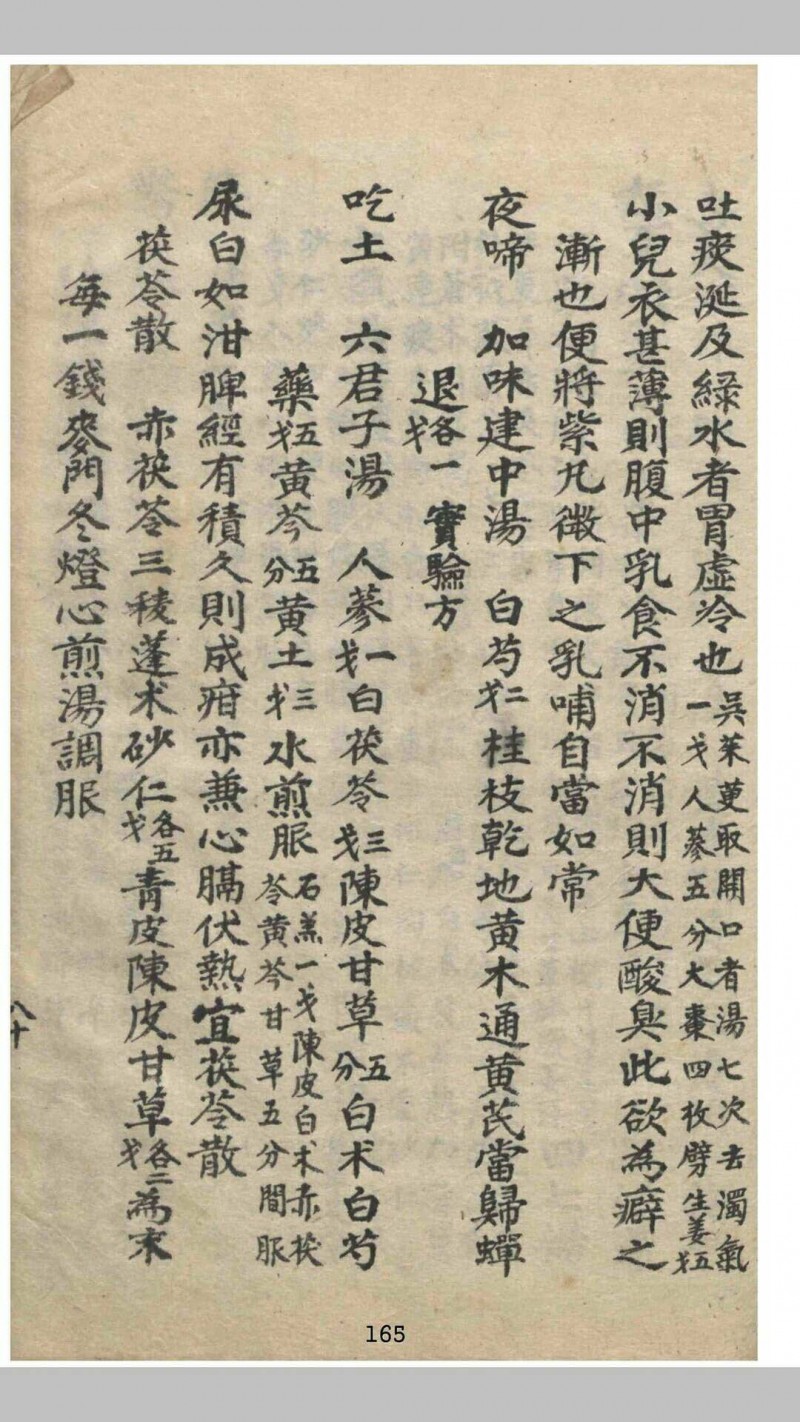 吐痰涎及綠水者胃虛冷也 吳茱萸取開口者湯七次去濁氣
一戔人蔘五分大棗四枚劈生姜五戔
小兒衣甚薄則腹中乳食不消不消則大便酸臭此欲為癖之
漸也便將紫丸微下之乳哺自當如常
夜啼 加味建中湯 白芍二戔桂枝乾地黃木通黃芪當歸蟬
退各一戔 實驗方
吃土 六君子湯 人蔘一戔白茯苓三戔陳皮甘草五分白朮白芍
藥五戔黃芩五分黃土三戔水煎服 石羔一戔陳皮白朮赤茯
苓黃芩甘草五分間服
尿白如泔脾經有積久則成疳亦兼心膈伏熱宜茯苓散
茯苓散 赤茯苓三稜蓬朮砂仁各五戔靑皮陳皮甘草各二戔為末
每一錢麥門冬燈心煎湯調服
八十
165